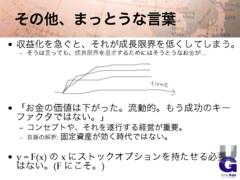 その他、まっとうな言葉
• 収益化を急ぐと、それが成長限界を低くしてしまう。
– そうは言っても、成長限界を追求するためにはそうとうなお金が…
time
• 「お金の価値は下がった。流動的。もう成功のキー
ファクタではない。」
– コンセプトや、それを遂行する経営が重要。
– 首藤の解釈: 固定資産が効く時代ではない。
• y = F(x) の x にストックオプションを持たせる必要
はない。(F にこそ。)